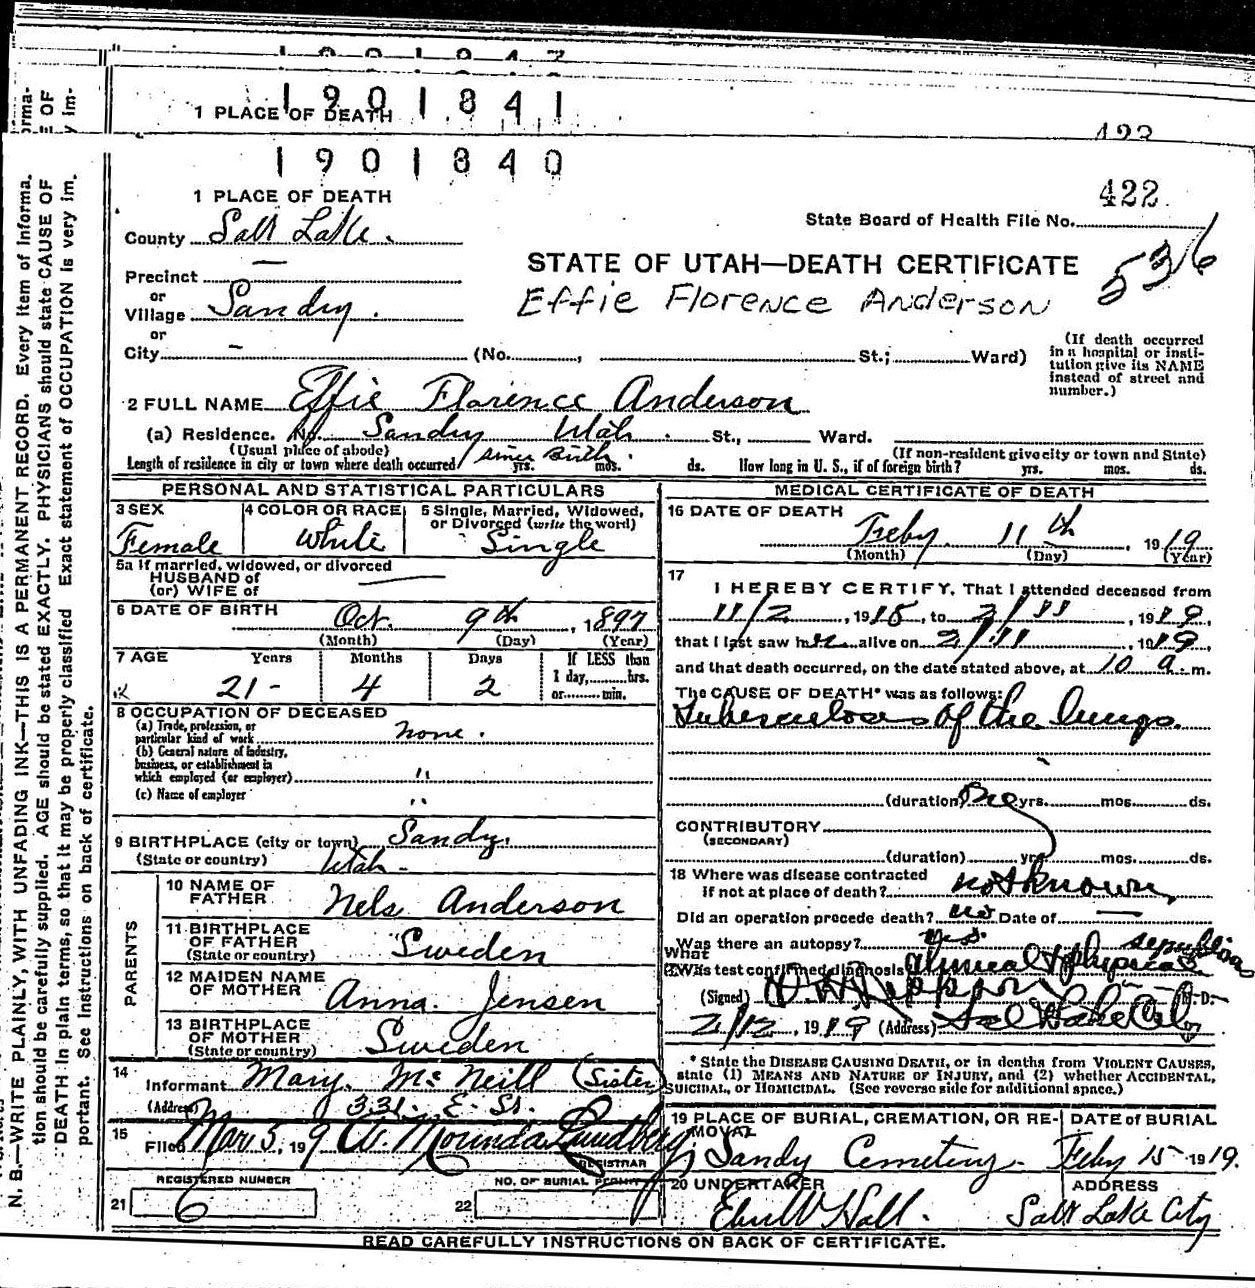 1901841
1 PLACE OF DEATH
1901840
422
1 PLACE OF DEATH
State Board of Health File No.
County Salt Lake.
536
STATE OF UTAH—DEATH CERTIFICATE
Precinct —
Effie Florence Anderson
or
Village Sandy.
or
City - (No. , St.; Ward)
(If death occurred in a hospital or insti-
tution give its NAME
instead of street and
number.)
2 FULL NAME Effie Florence Anderson
(a) Residence. No. Sandy Utah. St., Ward.
(Usual place of abode) (If non-resident give city or town and State)
Length of residence in city or town where death occurred since Birth. yrs. mos. ds. How long in U. S., if of foreign birth? yrs. mos. ds.
PERSONAL AND STATISTICAL PARTICULARS
3 SEX Female
4 COLOR OR RACE White
5 Single, Married, Widowed,
or Divorced (write the word)
Single
5a If married, widowed, or divorced
HUSBAND of
(or) WIFE of —
6 DATE OF BIRTH Oct. 9th, 1897
(Month) (Day) (Year)
7 AGE Years Months Days If LESS than
1 day, hrs.
or min.
21 - 4 2
8 OCCUPATION OF DECEASED
(a) Trade, profession, or
particular kind of work none.
(b) General nature of industry,
business, or establishment in
which employed (or employer) "
(c) Name of employer "
9 BIRTHPLACE (city or town) Sandy,
(State or country) Utah -
PARENTS
10 NAME OF
FATHER Nels Anderson
11 BIRTHPLACE
OF FATHER Sweden
(State or country)
12 MAIDEN NAME
OF MOTHER Anna Jensen
13 BIRTHPLACE
OF MOTHER Sweden
(State or country)
14
Informant Mary McNeill (Sister)
(Address) 331. E. St.
15
Filed Mar 5, 19 9 Lundberg
REGISTRAR
REGISTERED NUMBER
NO. OF BURIAL PERMIT
21 6
22
MEDICAL CERTIFICATE OF DEATH
16 DATE OF DEATH
Feby 11th, 1919
(Month) (Day) (Year)
17
I HEREBY CERTIFY, That I attended deceased from
11/2, 1915, to 2/11, 1919
that I last saw her alive on 2/11, 1919
and that death occurred, on the date stated above, at 10 a. m.
The CAUSE OF DEATH* was as follows:
Tuberculosis of the lungs.
(duration) yrs. mos. ds.
CONTRIBUTORY
(SECONDARY)
(duration) yrs. mos. ds.
18 Where was disease contracted
if not at place of death? not known
Did an operation precede death? no Date of —
Was there an autopsy?
What
test confirmed diagnosis? Clinical & physical
(Signed) M. D.
2/12, 1919 (Address) Salt Lake City
* State the DISEASE CAUSING DEATH, or in deaths from VIOLENT CAUSES,
state (1) MEANS AND NATURE OF INJURY, and (2) whether ACCIDENTAL,
SUICIDAL, or HOMICIDAL. (See reverse side for additional space.)
19 PLACE OF BURIAL, CREMATION, OR RE-
MOVAL
Sandy Cemetery.
DATE of BURIAL
Feby 15 1919.
20 UNDERTAKER
Hall.
ADDRESS
Salt Lake City
READ CAREFULLY INSTRUCTIONS ON BACK OF CERTIFICATE.
N. B.—WRITE PLAINLY, WITH UNFADING INK—THIS IS A PERMANENT RECORD. Every item of informa-
tion should be carefully supplied. AGE should be stated EXACTLY. PHYSICIANS should state CAUSE OF
DEATH in plain terms, so that it may be properly classified. Exact statement of OCCUPATION is very im-
portant. See instructions on back of certificate.